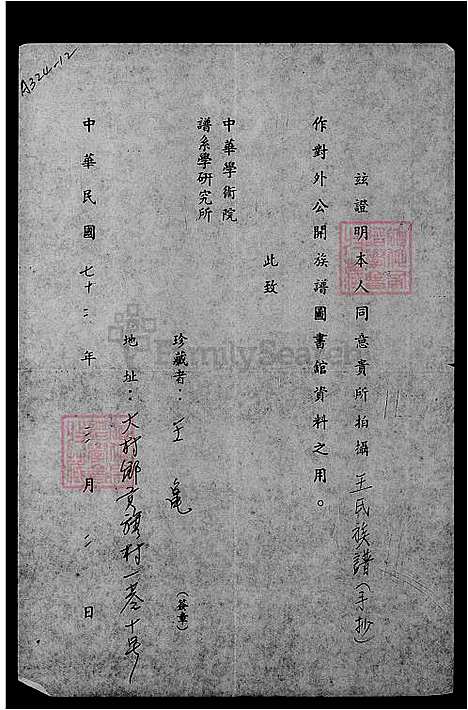 A324-12
茲證明本人同意貴所拍攝王氏族譜(手抄)
作對外公開族譜圖書館資料之用。
此致
中華學術院
譜系學研究所
珍藏者：王
(簽章)
地址：大村鄉貢旗村一巷十号
中華民國七十二年三月二日
FamilySearch